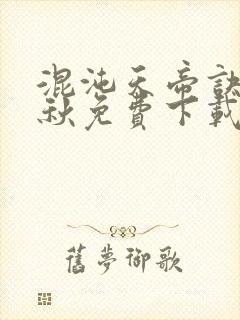 混沌天帝訣
秋免費下載
舊夢御歌